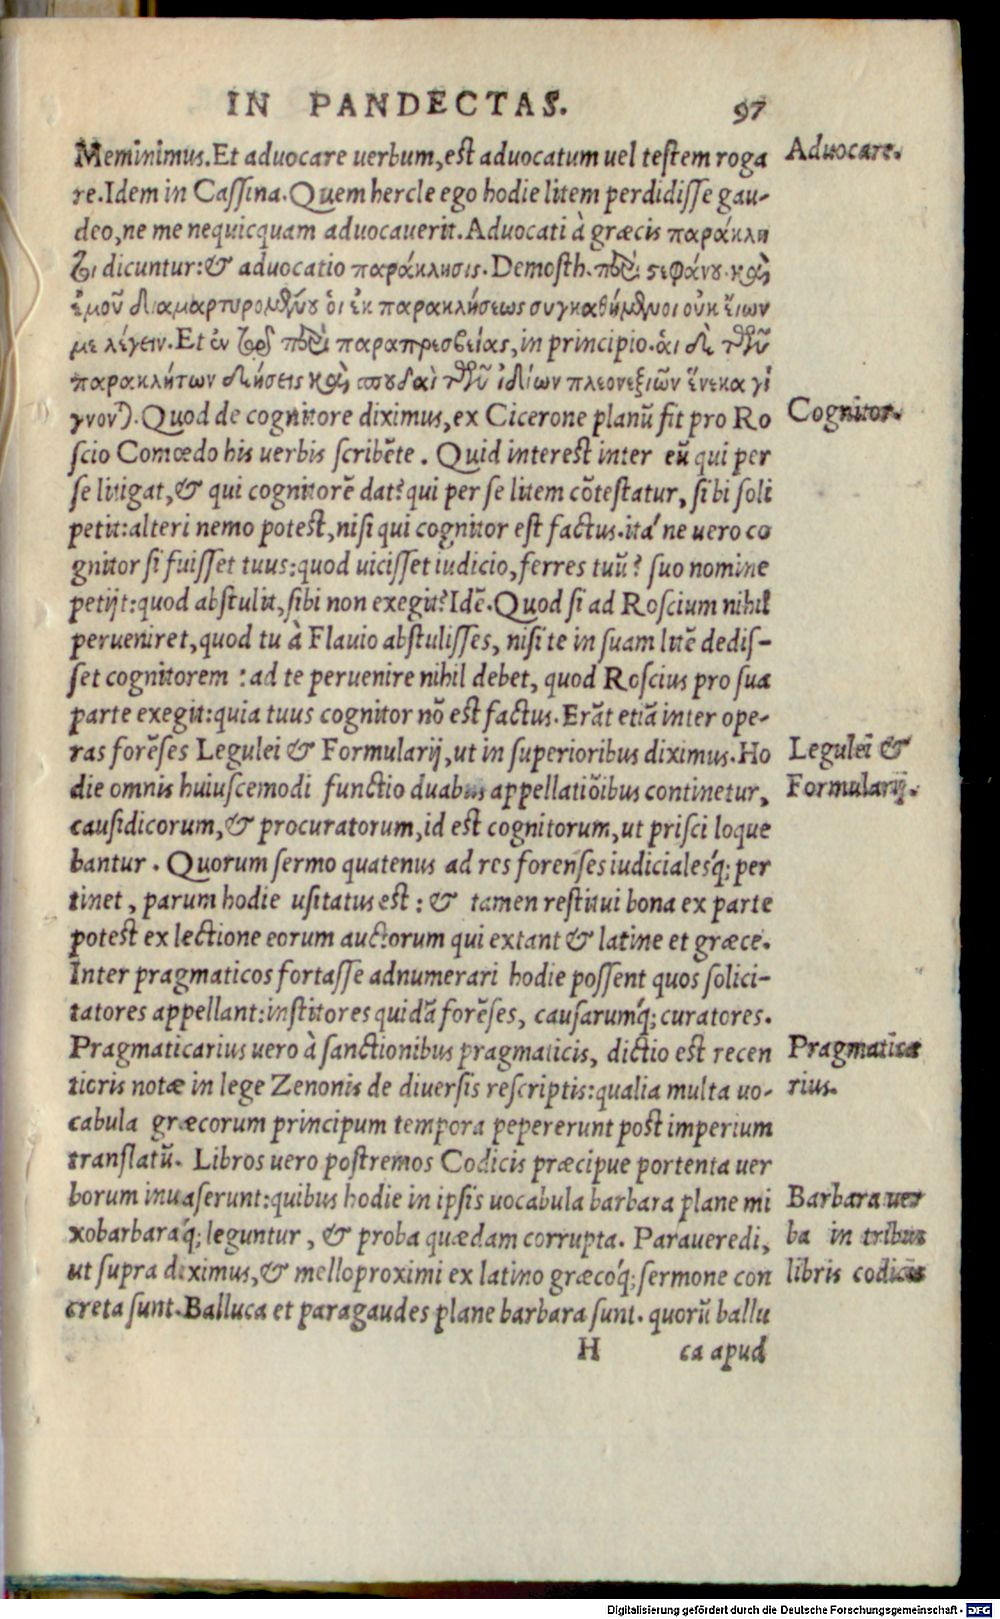 IN PANDECTAS. 97
Meminimus. Et aduocare uerbum, est aduocatum uel testem roga
re. Idem in Cassina. Quem hercle ego hodie litem perdidisse gau-
deo, ne me nequicquam aduocauerit. Aduocati à græcis παράκλη
τοι dicuntur: & aduocatio παράκλησις. Demosth. περὶ στεφάνου. καὶ
ἐμοῦ διαμαρτυρομένου οἱ ἐκ παρακλήσεως συγκαθήμενοι οὐκ εἴων
με λέγειν. Et ἐν τῷ περὶ παραπρεσβείας, in principio. αἱ δὲ τῶν
παρακλήτων δεήσεις καὶ σπουδαὶ τῶν ἰδίων πλεονεξιῶν ἕνεκα γί
γνονται. Quod de cognitore diximus, ex Cicerone planũ fit pro Ro
scio Comœdo his uerbis scribẽte. Quid interest inter eũ qui per
se litigat, & qui cognitorẽ dat? qui per se litem cõtestatur, sibi soli
petit: alteri nemo potest, nisi qui cognitor est factus. ita' ne uero co
gnitor si fuisset tuus: quod uicisset iudicio, ferres tuũ? suo nomine
petijt: quod abstulit, sibi non exegit? Idẽ. Quod si ad Roscium nihil
perueniret, quod tu à Flauio abstulisses, nisi te in suam litẽ dedis-
set cognitorem: ad te peruenire nihil debet, quod Roscius pro sua
parte exegit: quia tuus cognitor nõ est factus. Erãt etiã inter ope-
ras forẽses Legulei & Formularij, ut in superioribus diximus. Ho
die omnis huiuscemodi functio duabus appellatiõibus continetur,
causidicorum, & procuratorum, id est cognitorum, ut prisci loque
bantur. Quorum sermo quatenus ad res forenses iudicialesq́; per
tinet, parum hodie usitatus est: & tamen restitui bona ex parte
potest ex lectione eorum auctorum qui extant & latine et græce.
Inter pragmaticos fortasse adnumerari hodie possent quos solici-
tatores appellant: institores quidã forẽses, causarumq́; curatores.
Pragmaticarius uero à sanctionibus pragmaticis, dictio est recen
tioris notæ in lege Zenonis de diuersis rescriptis: qualia multa uo-
cabula græcorum principum tempora pepererunt post imperium
translatũ. Libros uero postremos Codicis præcipue portenta uer
borum inuaserunt: quibus hodie in ipsis uocabula barbara plane mi
xobarbaraq́; leguntur, & proba quædam corrupta. Paraueredi,
ut supra diximus, & melloproximi ex latino græcoq́; sermone con
creta sunt. Balluca et paragaudes plane barbara sunt. quorũ ballu
H ca apud
Aduocare.
Cognitor.
Legulei &
Formularij.
Pragmatica
rius.
Barbara uer
ba in tribus
libris codicis
Digitalisierung gefördert durch die Deutsche Forschungsgemeinschaft - DFG